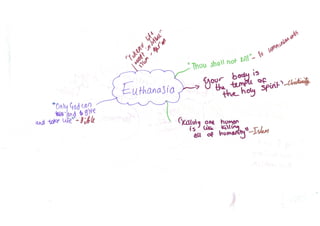 Euthanasia
"Thou shall not kill" - 10 commandments
"your body is
the temple of
the holy spirit" - Christianity
"Killing one human
is like killing
all of humanity" - Islam
"Only God can
and give
and take life" - Bible